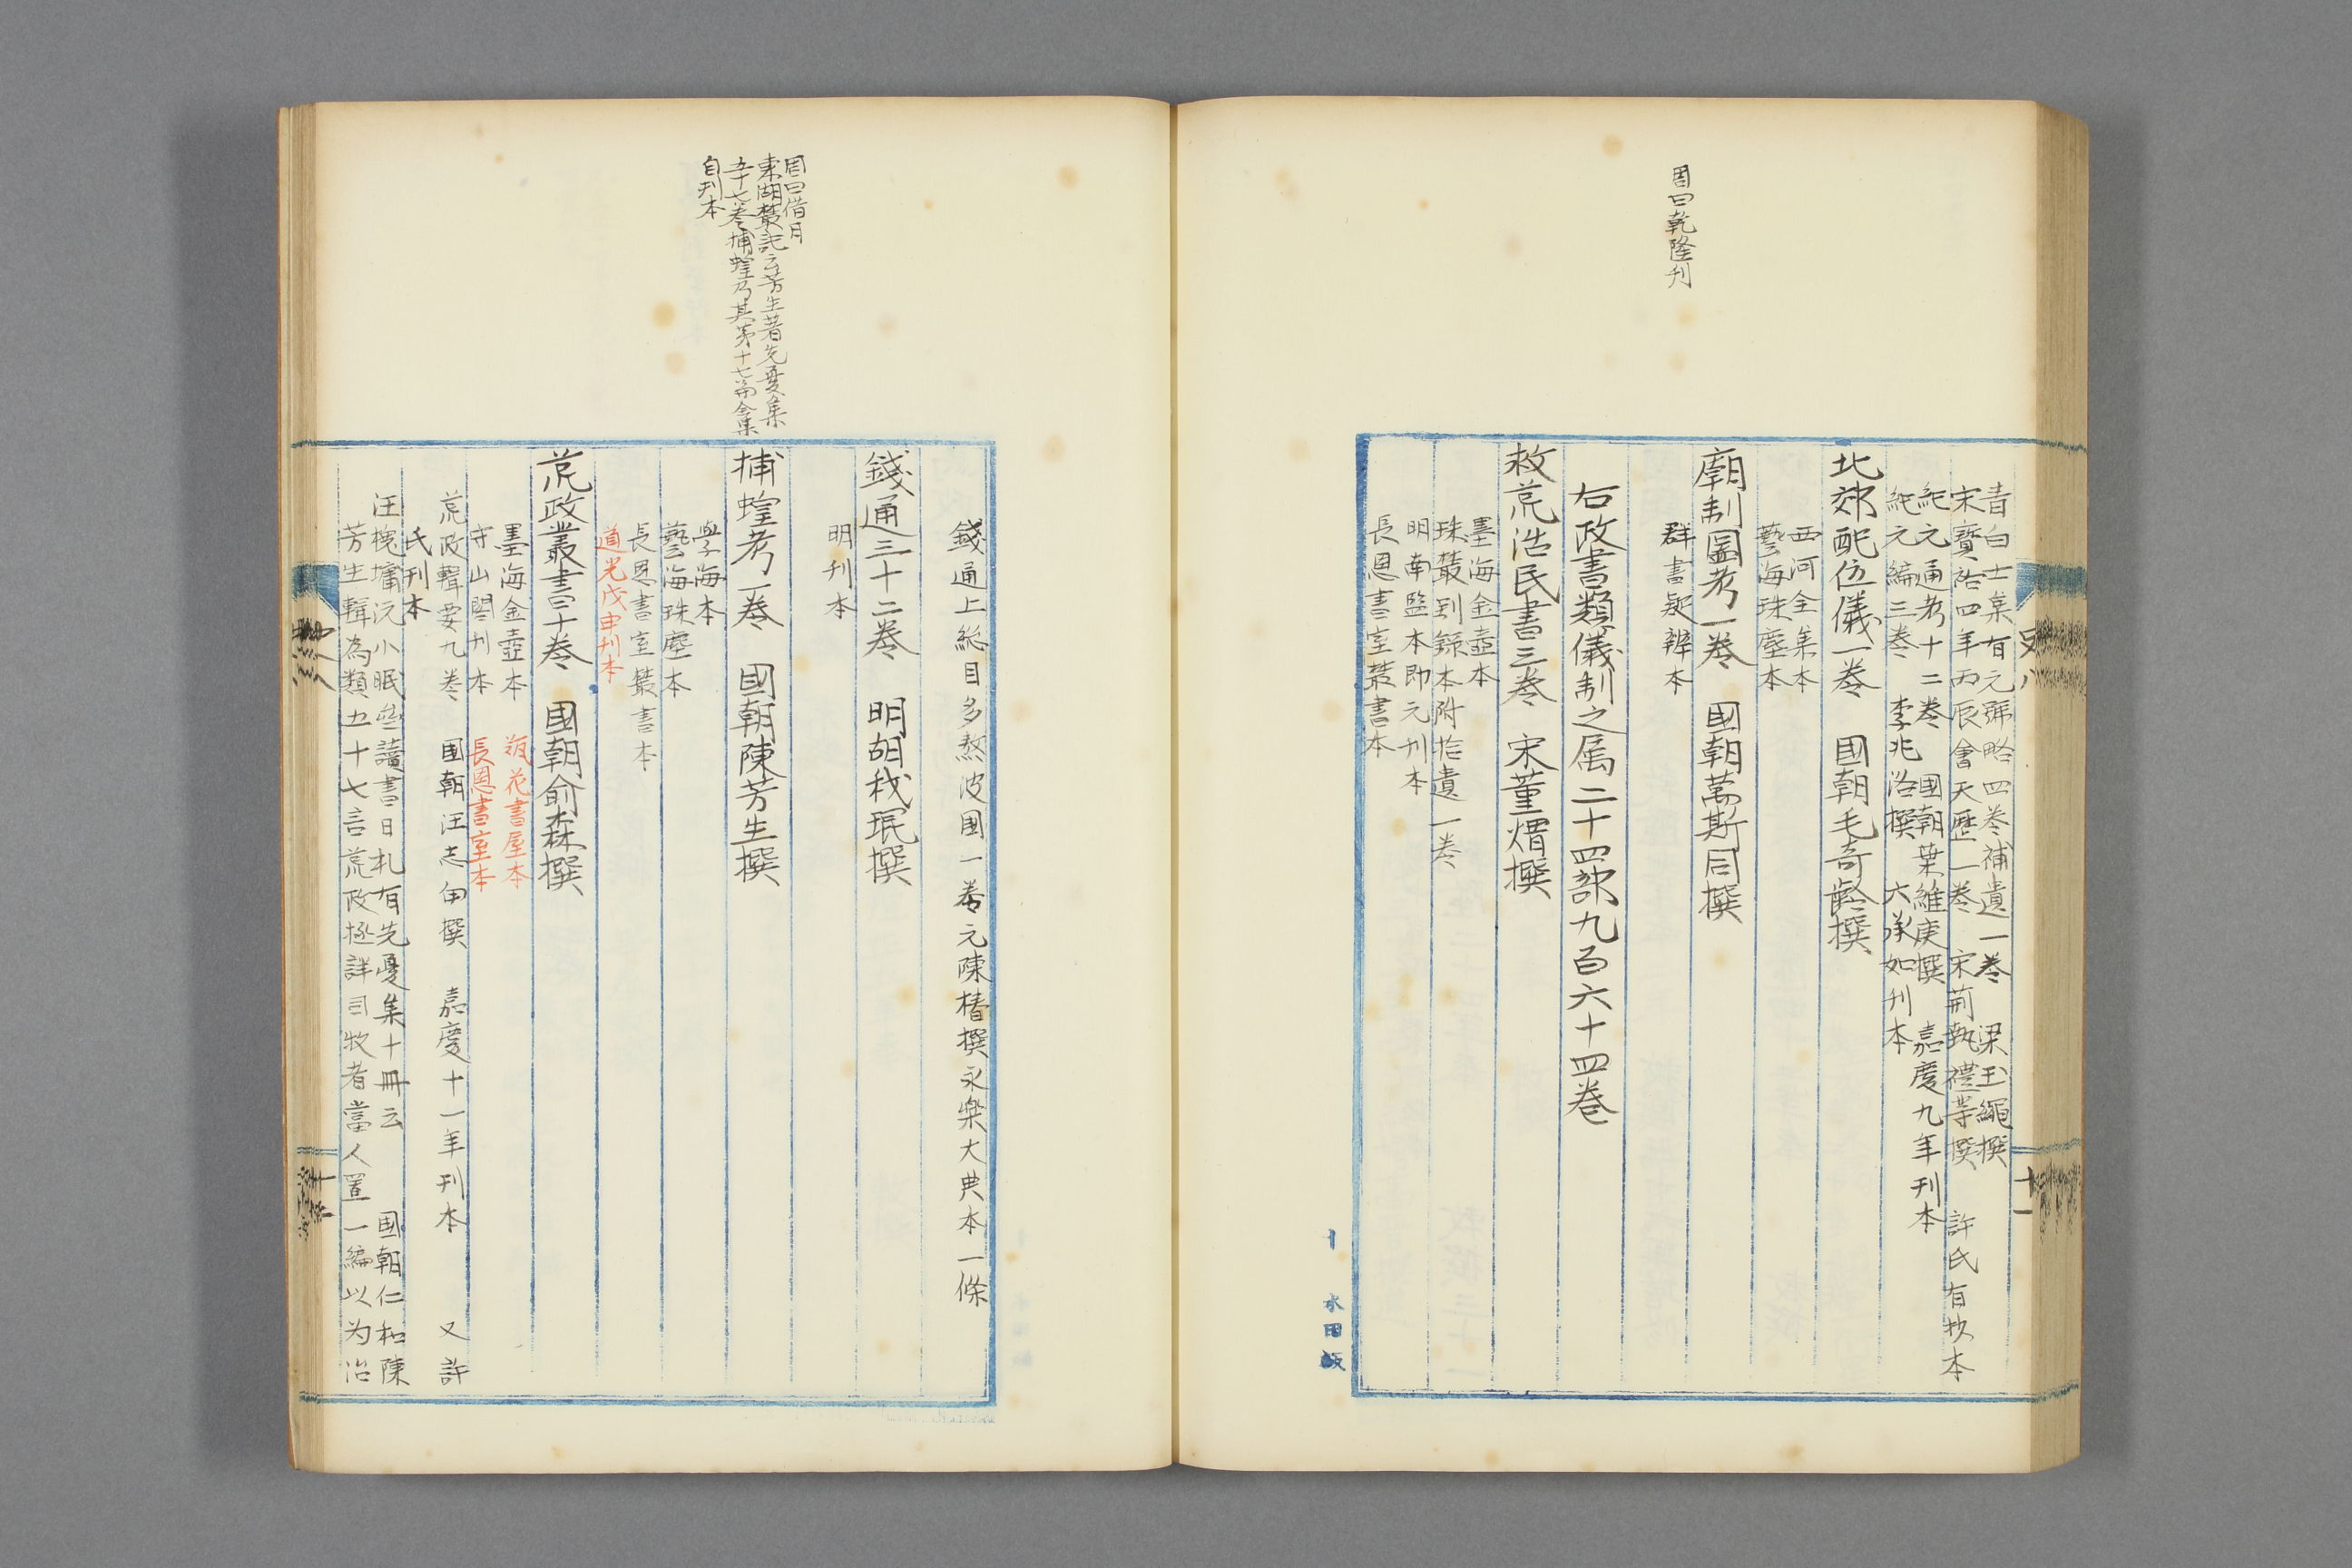 周曰乾隆刊
青白士集有元號略四卷補遺一卷 梁玉繩撰
宋寶祐四年丙辰會天歷一卷 宋荊執禮等撰 許氏有抄本
紀元通考十二卷 國朝葉維庚撰 嘉慶九年刊本
紀元編三卷 李兆洛撰 六承如刊本
北郊配位儀一卷 國朝毛奇齡撰
西河全集本
藝海珠塵本
廟制圖考一卷 國朝萬斯同撰
群書疑辨本
右政書類儀制之属二十四部九百六十四卷
救荒活民書三卷 宋董煟撰
墨海金壺本
珠叢別錄本附拾遺一卷
明南監本即元刊本
長恩書室叢書本
史八
十一
水田
周曰借月
東湖叢記云芳生著先憂集
五十七卷捕蝗乃其第十七第全集
自刊本
錢通上総目多熬波圖一卷元陳椿撰永樂大典本一條
錢通三十二卷 明胡我珉撰
明刊本
捕蝗考一卷 國朝陳芳生撰
學海本
藝海珠塵本
長恩書室叢書本
道光戊申刊本
荒政叢書十卷 國朝俞森撰
墨海金壺本 瓶花書屋本
守山閣刊本 長恩書室本
荒政輯要九卷 國朝汪志伊撰 嘉慶十一年刊本 又許
氏刊本
汪槐塘沆小眠些讀書日札有先憂集十冊云 國朝仁和陳
芳生輯為類五十七言荒政極詳司牧者當人置一編以为治